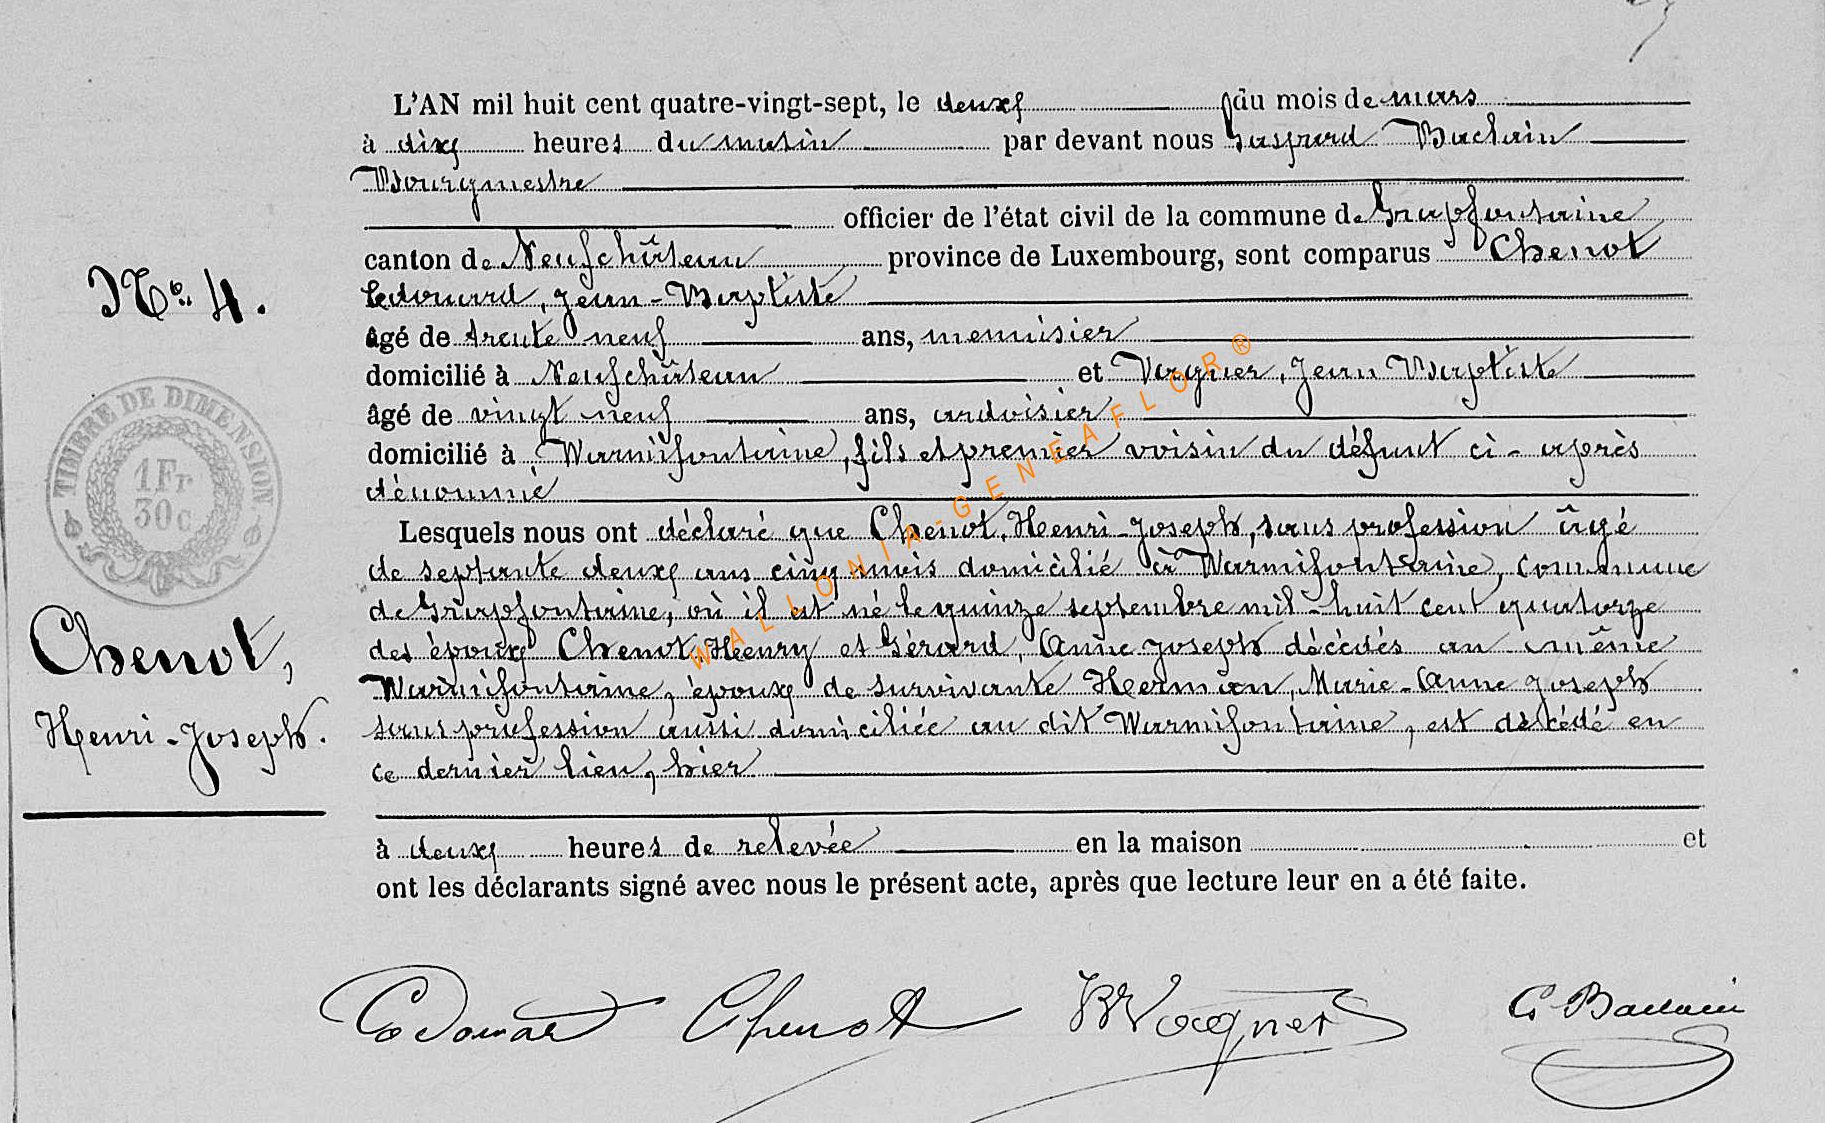 L'AN mil huit cent quatre-vingt-sept, le deux du mois de mars
à dix heures du matin par devant nous Gaspard Baclain
Bourgmestre
officier de l'état civil de la commune de Grapfontaine
canton de Neufchâteau province de Luxembourg, sont comparus Chenot
Edouard, Jean-Baptiste
âgé de trente neuf ans, menuisier
domicilié à Neufchâteau et Wagner, Jean Baptiste
âgé de vingt neuf ans, ardoisier
domicilié à Warmifontaine, fils et premier voisin du défunt ci-après
dénommé
Lesquels nous ont déclaré que Chenot, Henri-Joseph, sans profession âgé
de septante deux ans cinq mois domicilié à Warmifontaine, commune
de Grapfontaine, où il est né le quinze septembre mil-huit cent quatorze
des époux Chenot, Henry et Gérard, Anne Joseph décédés au même
Warmifontaine, époux de survivante Herman, Marie-Anne Joseph
sans profession aussi domiciliée au dit Warmifontaine, est décédé en
ce dernier lieu, hier
à deux heures de relevée en la maison et
ont les déclarants signé avec nous le présent acte, après que lecture leur en a été faite.
No. 4.
TIMBRE DE DIMENSION
1Fr
30c
Chenot,
Henri-Joseph.
WALLONIA-GENEAFLOR®
Edouard Chenot JBWagner G. Baclain